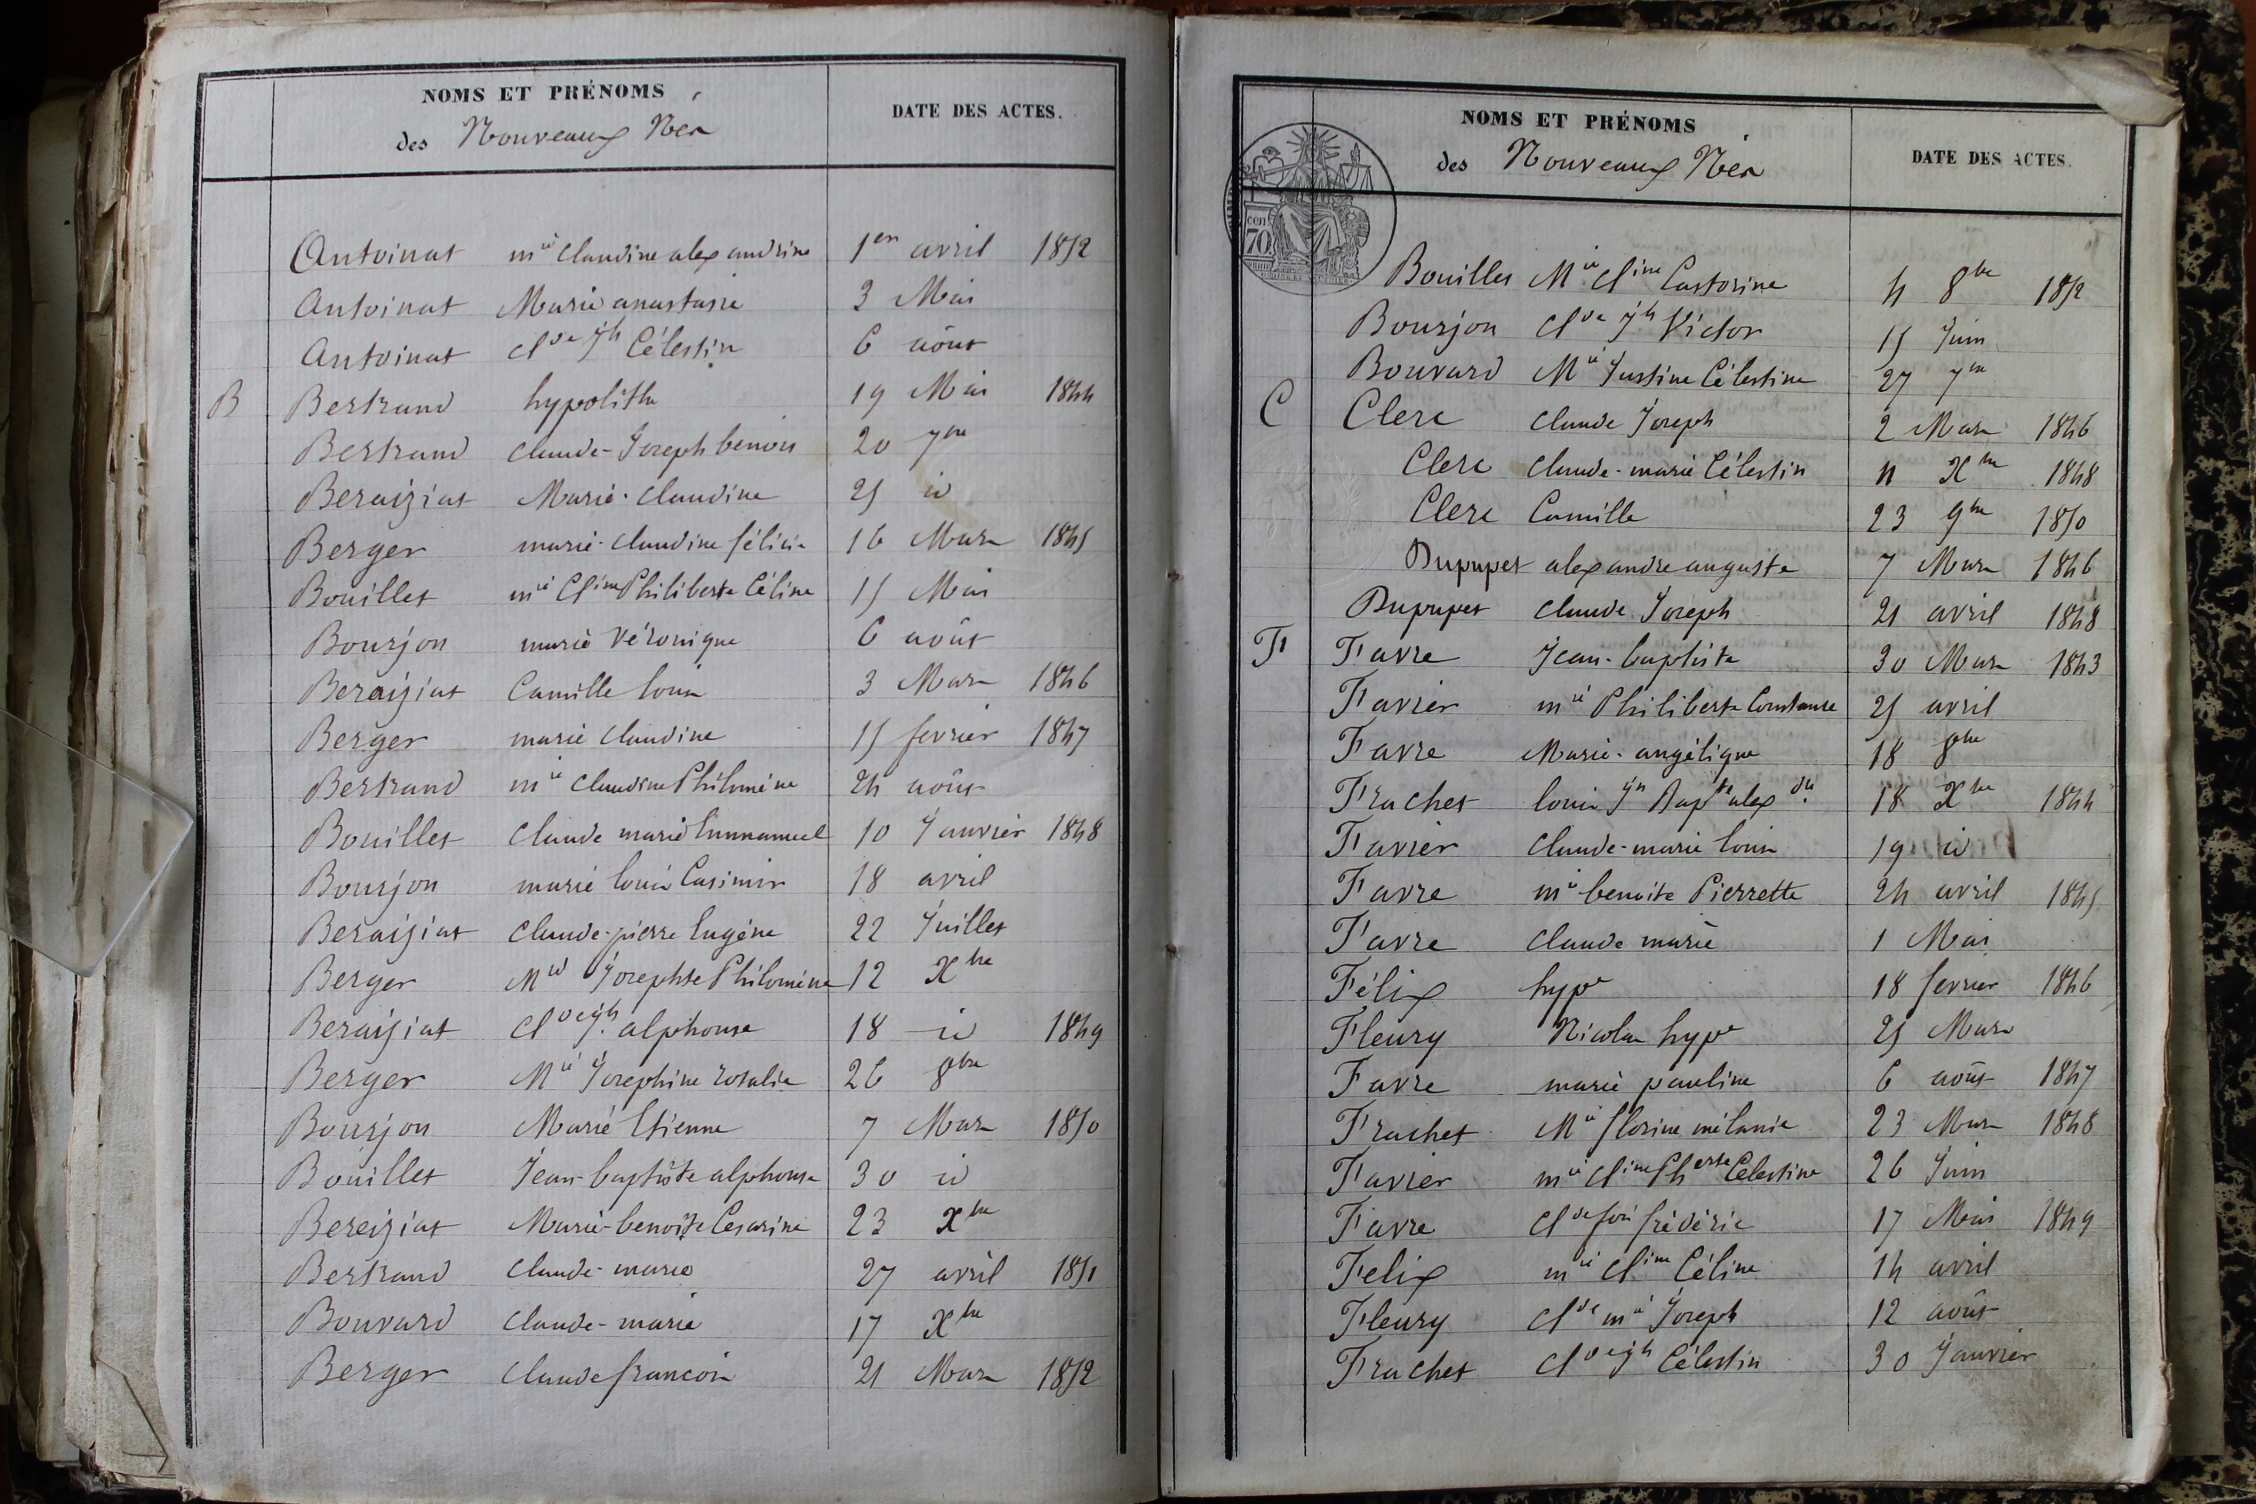 NOMS ET PRÉNOMS
DATE DES ACTES.
des Nouveaux Nés
Antoinat mie Claudine alexandrine 1er avril 1852
Antoinat Marie anastasie 3 Mai
Antoinat Cl de Jh Célestin 6 août
B Bertrand hypolithe 19 Mai 1844
Bertrand Claude-Joseph benoit 20 7bre
Beraiziat Marie-Claudine 25 id
Berger marie-Claudine félicie 16 Mars 1845
Bouillet mie Cline Philiberte Céline 15 Mai
Bourjon marie Véronique 6 août
Beraiziat Camille louis 3 Mars 1846
Berger marie Claudine 15 fevrier 1847
Bertrand mie Claudine Philomène 24 août
Bouillet Claude marie Emmanuel 10 Janvier 1848
Bourjon marie louis Casimir 18 avril
Beraiziat Claude-pierre Eugène 22 Juillet
Berger Mie Josephte Philomène 12 Xbre
Beraiziat Cl de Jh alphonse 18 id 1849
Berger Mie Josephine rosalie 26 8bre
Bourjon Marie Etienne 7 Mars 1850
Bouillet Jean-baptiste alphonse 30 id
Bereiziat Marie-benoite Cesarine 23 Xbre
Bertrand Claude-marie 27 avril 1851
Bouvard Claude-marie 17 Xbre
Berger Claude francois 21 Mars 1852
NOMS ET PRÉNOMS
DATE DES ACTES.
des Nouveaux Nés
70
Bouillet Mie Cline Castorine 4 8bre 1852
Bourjon Cl de Jh Victor 15 Juin
Bouvard Mie Justine Célestine 27 7bre
C Clerc Claude Joseph 2 Mars 1846
Clerc Claude-marie Célestin 11 Xbre 1848
Clerc Camille 23 9bre 1850
Dupupet alexandre auguste 7 Mars 1846
Dupupet Claude Joseph 21 avril 1848
F Favre Jean-baptiste 30 Mars 1843
Favier mie Philiberte Constance 25 avril
Favre Marie-angélique 18 8bre
Frachet louis Jn Bapte alex dre 18 Xbre 1844
Favier Claude-marie louis 19 id
Favre mie benoite Pierrette 24 avril 1845
Favre Claude marie 1 Mai
Félix hypte 18 fevrier 1846
Fleury Nicolas hypte 25 Mars
Favre marie pauline 6 août 1847
Frachet Mie florine mélanie 23 Mars 1848
Favier mie Cline Pherte Celestine 26 Juin
Favre Cl de fois frédéric 17 Mai 1849
Felix mie Cline Céline 14 avril
Fleury Cl de mie Joseph 12 août
Frachet Cl de Jh Célestin 30 Janvier